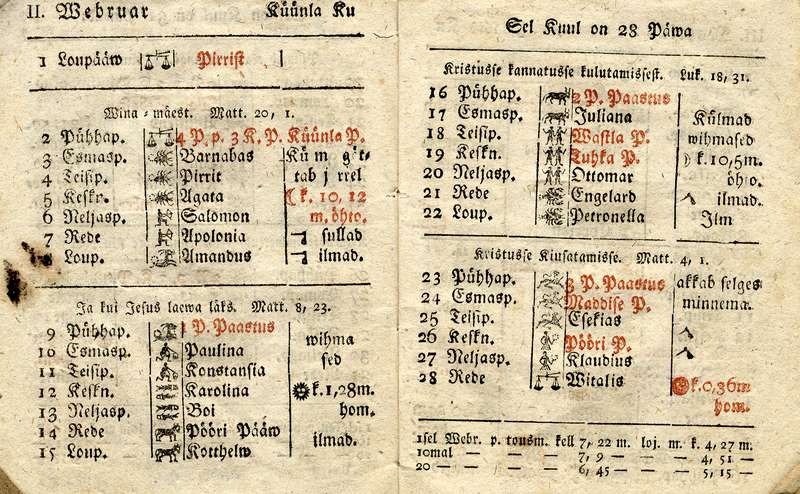 II. Webruar Küünla Ku
1 Loupääw Pirrist
Wina-mäest. Matt. 20, 1.
2 Pühhap. 4 P. p. 3 K. P. Küünla P.
3 Esmasp. Barnabas Kü m
4 Teisip. Pirrit tab j rrel
5 Keskn. Agata k. 10, 12
6 Neljasp. Salomon m. öhto.
7 Rede Apolonia sullad
8 Loup. Amandus ilmad.
Ja kui Jesus laewa läks. Matt. 8, 23.
9 Pühhap. 1 P. Paastus
10 Esmasp. Paulina wihma
11 Teisip. Konstansia sed
12 Keskn. Karolina k. 1, 28m.
13 Neljasp. Boi hom.
14 Rede Pööri Pääw
15 Loup. Kotthelw ilmad.
Sel Kuul on 28 Päwa
Kristusse kannatusse kulutamissest. Luk. 18, 31.
16 Pühhap. 2 P. Paastus
17 Esmasp. Juliana Külmad
18 Teisip. Wastla P. wihmased
19 Keskn. Tuhka P. k. 10, 5m.
20 Neljasp. Ottomar öhto.
21 Rede Engelard ilmad.
22 Loup. Petronella Ilm
Kristusse Kiusatamisse. Matt. 4, 1.
23 Pühhap. 3 P. Paastus akkab selges
24 Esmasp. Maddise P. minnema.
25 Teisip. Esekias
26 Keskn. Pööri P.
27 Neljasp. Klaudius
28 Rede Witalis k. 0, 36m
hom.
1sel Webr. p. tousm. kell 7, 22 m. loj. m. k. 4, 27 m.
10mal — — — — 7, 9 — — — 4, 51 —
20 — — — — — 6, 45 — — — 5, 15 —